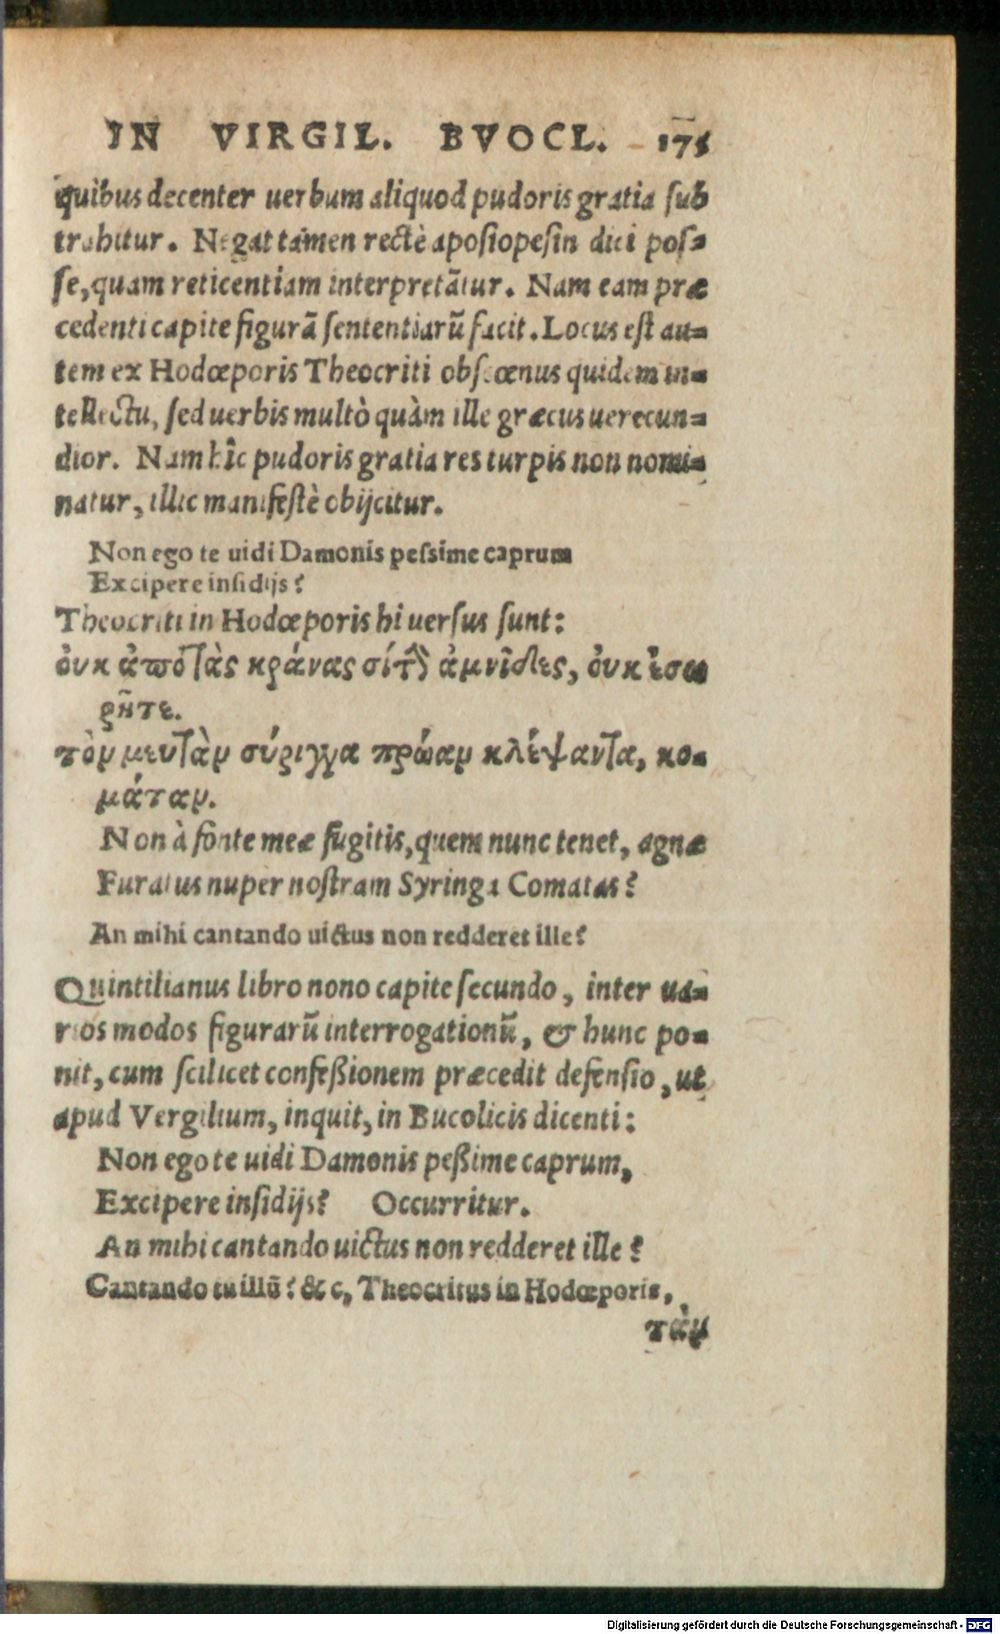 IN VIRGIL. BVOCL. 175
quibus decenter uerbum aliquod pudoris gratia sub
trahitur. Negat tamen rectè aposiopesin dici pos-
se, quam reticentiam interpretãtur. Nam eam præ
cedenti capite figurã sententiarũ facit. Locus est au-
tem ex Hodœporis Theocriti obscœnus quidem in-
tellectu, sed uerbis multò quàm ille græcus uerecun-
dior. Nam hîc pudoris gratia res turpis non nomi-
natur, illic manifestè obijcitur.
Non ego te uidi Damonis pessime caprum
Excipere insidijs?
Theocriti in Hodœporis hi uersus sunt:
ὀυκ ἀπὸ τὰς κράνας σίτθ ἀμνίδες, ὀυκ ἐσω
ρῆτε.
τὸν μευ τὰν σύριγγα πρώαν κλέψαντα, κο-
μάταν.
Non à fonte meæ fugitis, quem nunc tenet, agnæ
Furatus nuper nostram Syringa Comatas?
An mihi cantando uictus non redderet ille?
Quintilianus libro nono capite secundo, inter ua-
rios modos figurarũ interrogationũ, & hunc po-
nit, cum scilicet confeßionem præcedit defensio, ut
apud Vergilium, inquit, in Bucolicis dicenti:
Non ego te uidi Damonis peßime caprum,
Excipere insidijs? Occurritur.
An mihi cantando uictus non redderet ille?
Cantando tu illũ? & c, Theocritus in Hodœporis,
τὰν
Digitalisierung gefördert durch die Deutsche Forschungsgemeinschaft - DFG